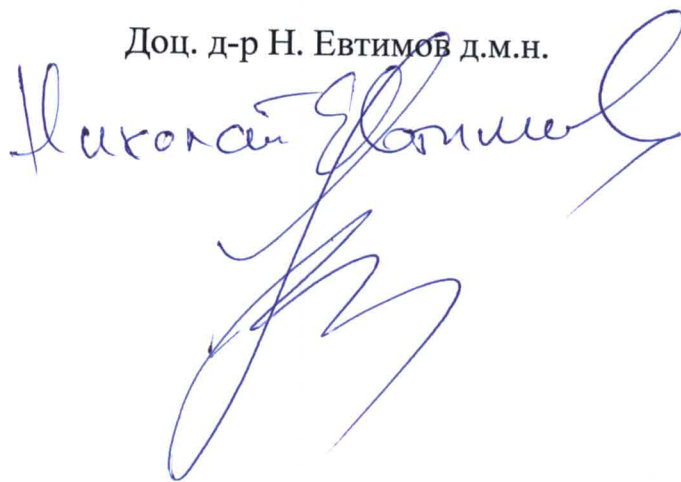 Доц. д-р Н. Евтимов д.м.н.
Николай Евтимов